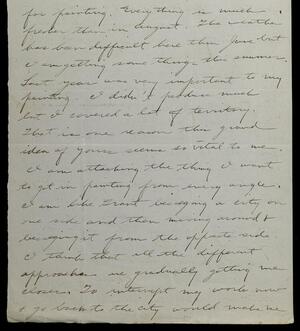 for painting. Everything is much
fresher than in August. The weather
has been difficult here this June but
I am getting some things this summer.
Last year was very important to my
painting. I didn't produce much
but I covered a lot of territory.
That is one reason this grand
idea of yours seems so vital to me.
I am attacking the thing I want
to get in painting from every angle.
I am like Grant besieging a city on
one side and then moving around &
besieging it from the opposite side.
I think that all the different
approaches are gradually getting me
closer. To interrupt my work now
& go back to the city would make me